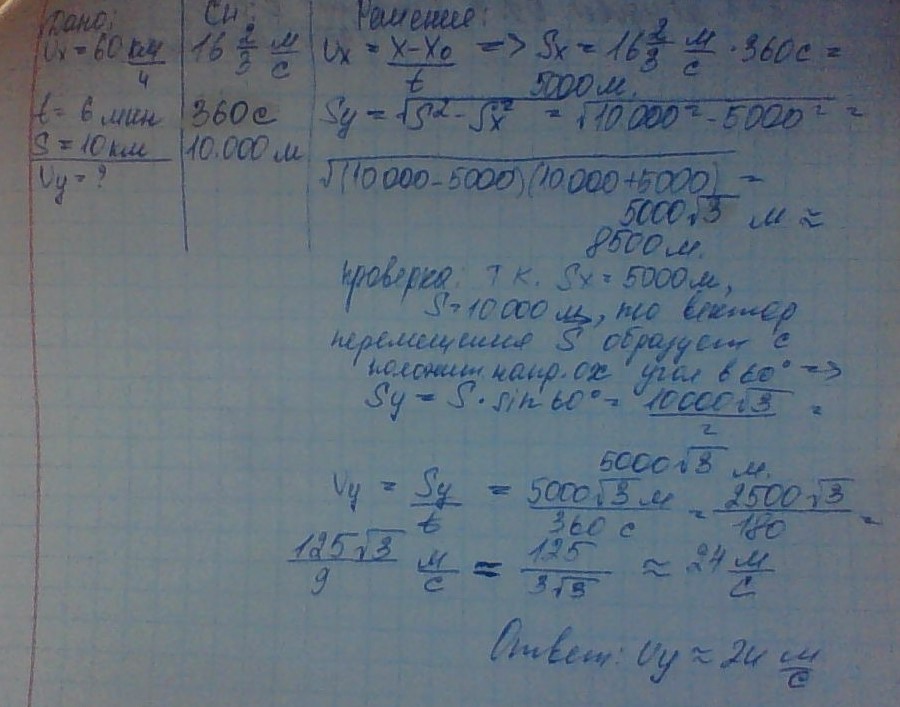 Дано:
Vx = 60 км/ч
t = 6 мин
S = 10 км
Vy = ?
СИ:
16 2/3 м/с
360 с
10.000 м
Решение:
Vx = (x - x₀)/t => Sx = 16 2/3 м/с · 360 с =
5000 м.
Sy = √(S² - Sx²) = √(10.000² - 5000²) =
√((10000 - 5000)(10000 + 5000)) =
5000√3 м ≈
8500 м.
Проверка: т.к. Sx = 5000 м,
S = 10.000 м, то вектор
перемещения S образует с
положит. напр. ох угол в 60° =>
Sy = S · sin 60° = 10000√3/2 =
5000√3 м.
Vy = Sy/t = 5000√3 м/360 с = 2500√3/180 =
125√3/9 м/с = 125/3√3 ≈ 24 м/с
Ответ: Vy ≈ 24 м/с